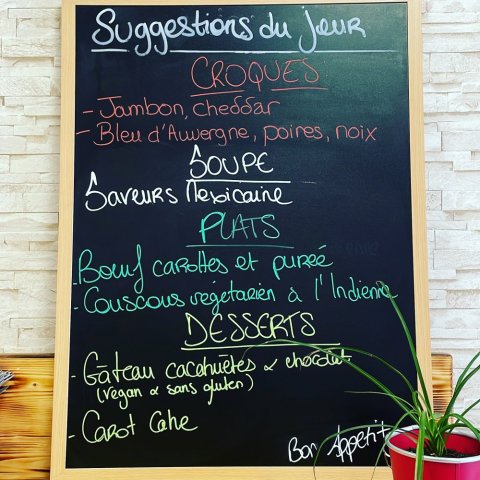 Suggestions du jour
CROQUES
- Jambon, cheddar
- Bleu d'Auvergne, poires, noix
SOUPE
Saveurs Mexicaine
PLATS
- Boeuf carottes et purée
- Couscous végétarien à l'Indienne
DESSERTS
- Gâteau cacahuètes & chocolat
(vegan & sans gluten)
- Carot Cake
Bon Appetit